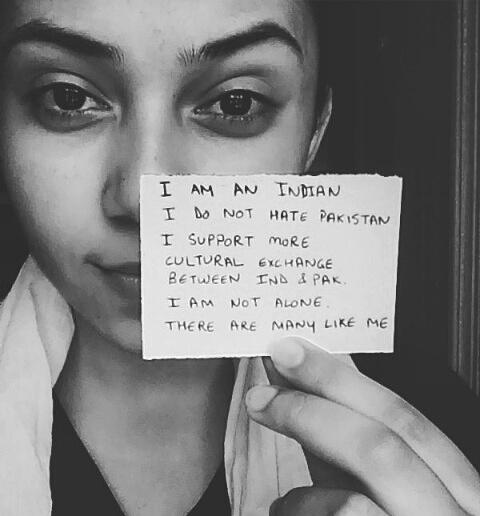 I AM AN INDIAN
I DO NOT HATE PAKISTAN
I SUPPORT MORE
CULTURAL EXCHANGE
BETWEEN IND & PAK.
I AM NOT ALONE.
THERE ARE MANY LIKE ME